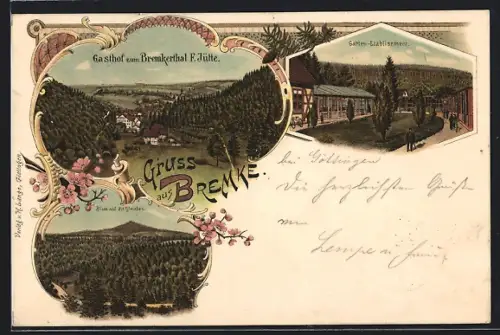 Gasthof zum Bremkerthal F. Jütte.
Garten-Etablissement.
Gruss
aus BREMKE.
Blick auf die Gleichen.
bei Göttingen
Die herzlichsten Grüße
von
Lempe u. Frau
Verlag v. H. Lange, Göttingen.